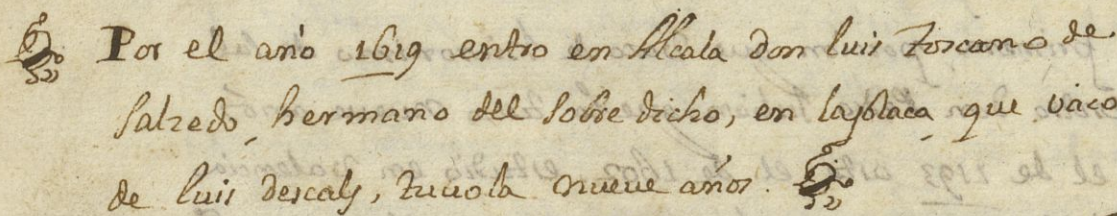 Por el año 1619 entro en Alcala don luis Toscano de
Salzedo, hermano del sobre dicho, en la plaça, que vaco
de luis descals, tuuola nueue años.